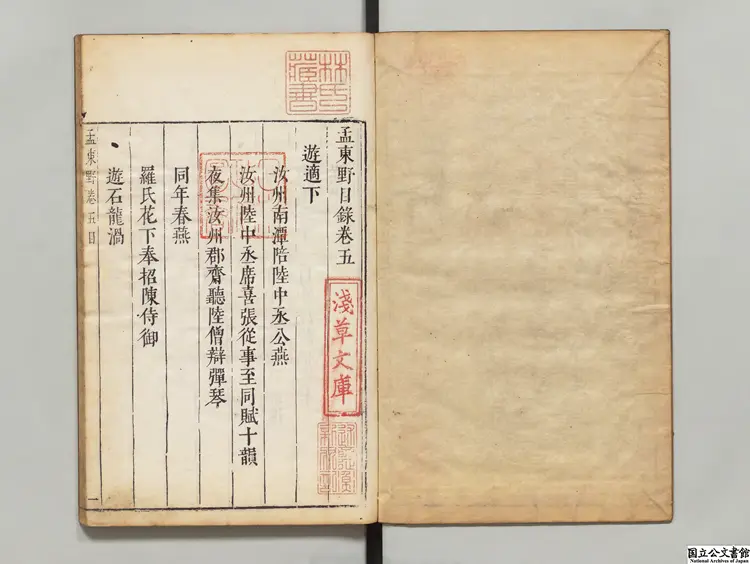 林氏藏書
孟東野目錄卷五
淺草文庫
遊適下
汝州南潭陪陸中丞公燕
汝州陸中丞席喜張從事至同賦十韻
夜集汝州郡齋聽陸僧辯彈琴
同年春燕
羅氏花下奉招陳侍御
遊石龍渦
孟東野卷五目
一
国立公文書館
National Archives of Japan